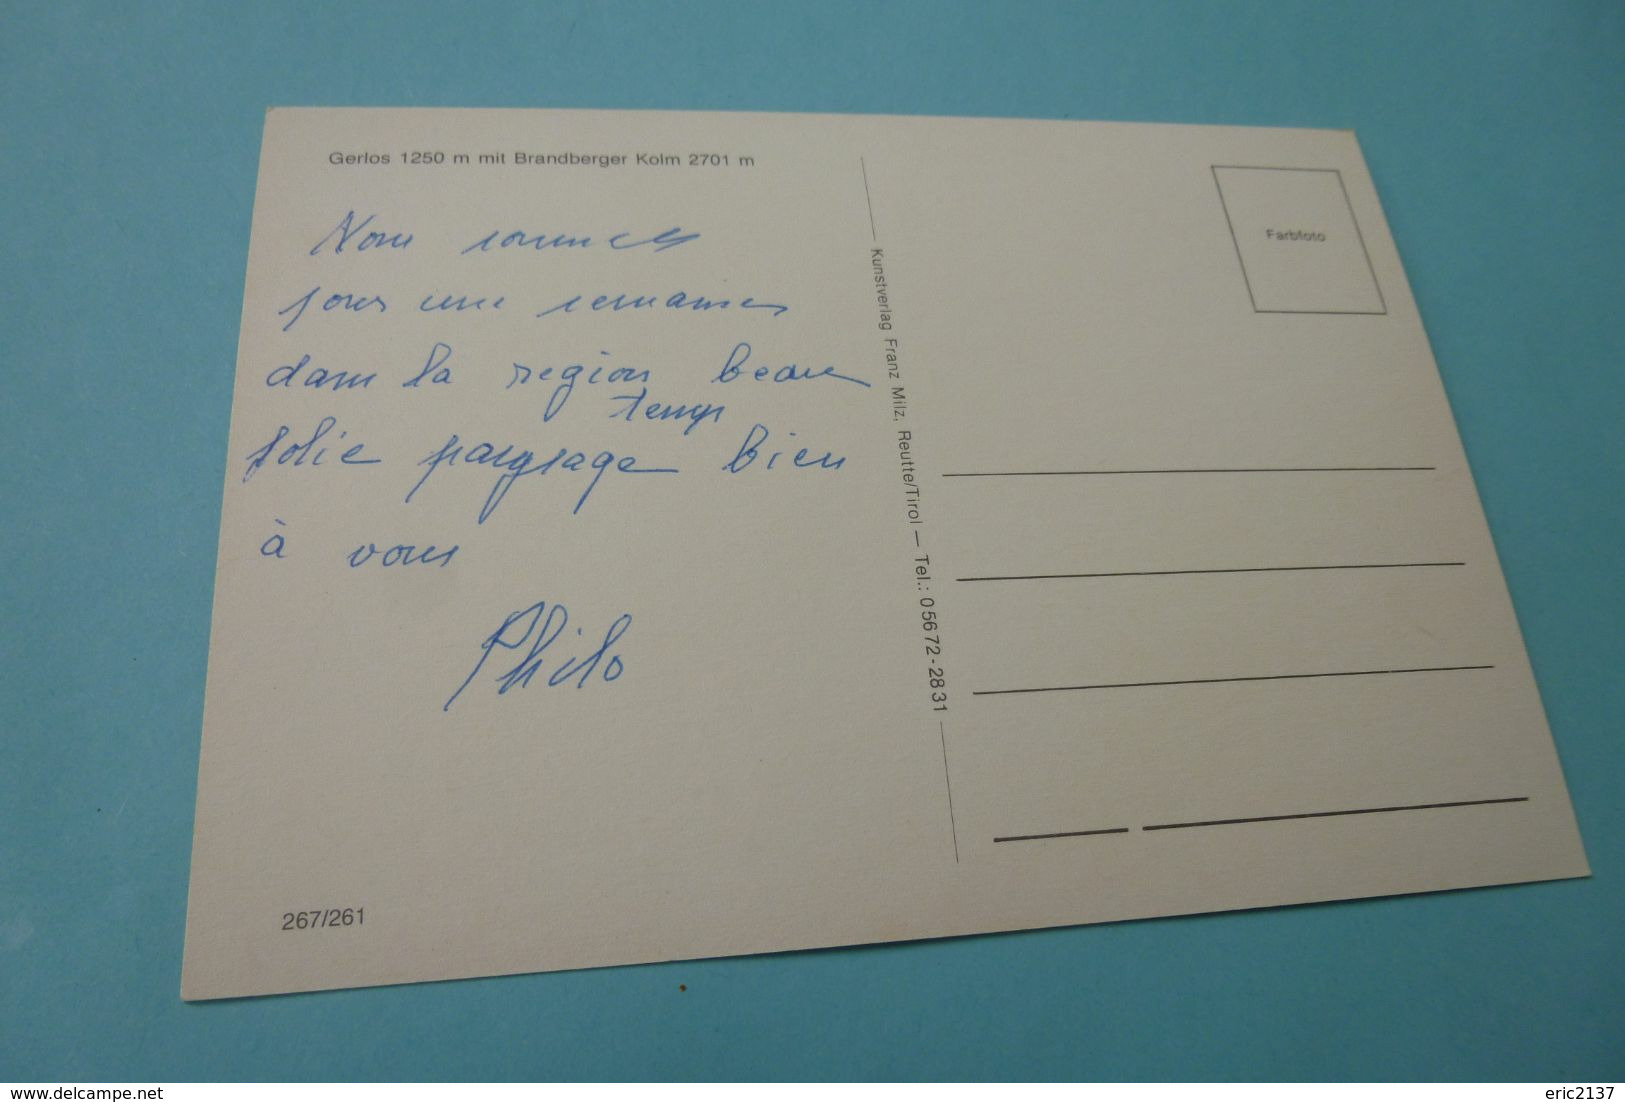 Gerlos 1250 m mit Brandberger Kolm 2701 m
Nous sommes
pour une semaines
dans la region beau
temps
jolie paysage bien
à vous
Philo
267/261
Kunstverlag Franz Milz, Reutte/Tirol — Tel.: 0 56 72 - 28 31
Farbfoto
www.delcampe.net
eric2137